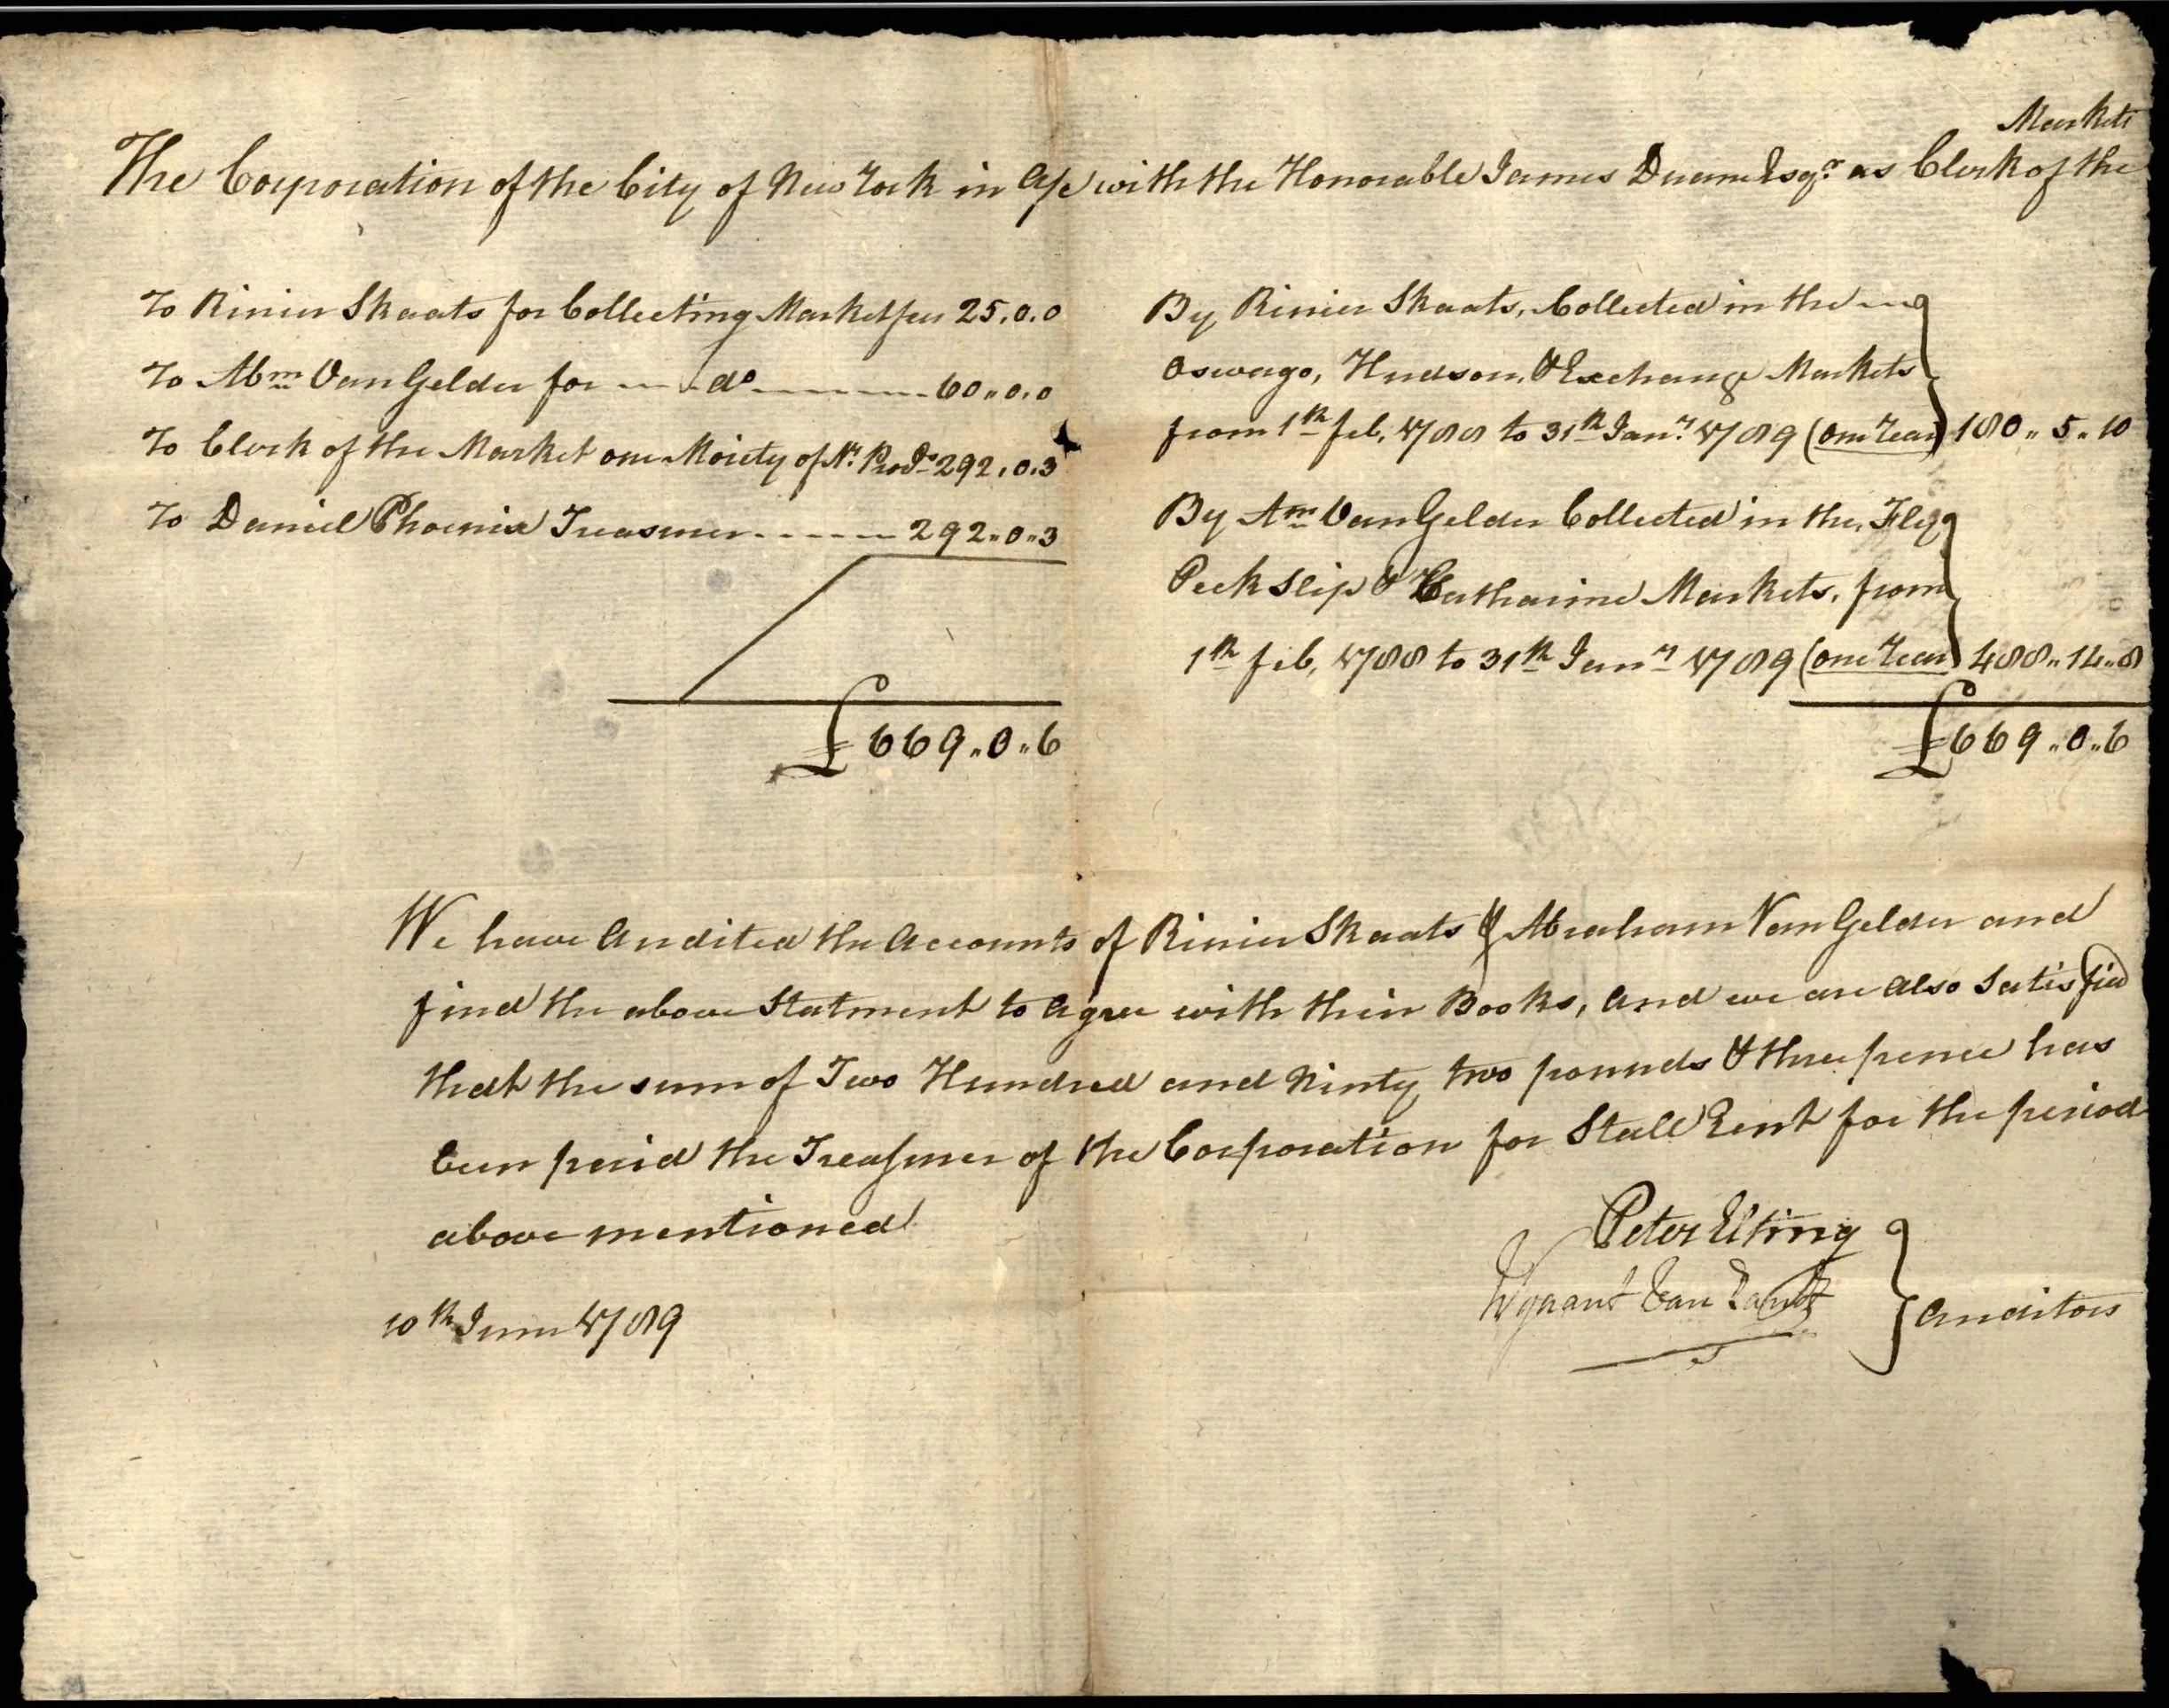 Markets
The Corporation of the City of New York in a/c with the Honorable James Duane Esqr. as Clerk of the
To Rinier Skaats for Collecting Market fees 25.0.0
To Abm Van Gelder for ---- do -------- 60,,0.0
To Clerk of the Market one Moiety of Nt. Prods 292.0.3
To Daniel Phoenix Treasurer ------ 292,,0,,3
£669,,0,,6
By Rinier Skaats, Collected in the ---
Oswago, Hudson, & Exchange Markets
from 1th feb, 1788 to 31th Jany. 1789 (one Year) 180,,5,,10
By Am Van Gelder Collected in the, Fly
Peck Slip & Catharine Markets, from
1th feb, 1788 to 31th Jany 1789 (one Year) 488,,14,,8
£669,,0,,6
We have Audited the Accounts of Rinier Skaats & Abraham Van Gelder and
find the above Statment to Agree with their Books, and we are also Satisfied
that the sum of Two Hundred and Ninty two pounds & three pence has
been paid the Treasurer of the Corporation for Stall Rent for the period
above mentioned
Peter Elting
Wynant Van Zandt
Auditors
10th June 1789